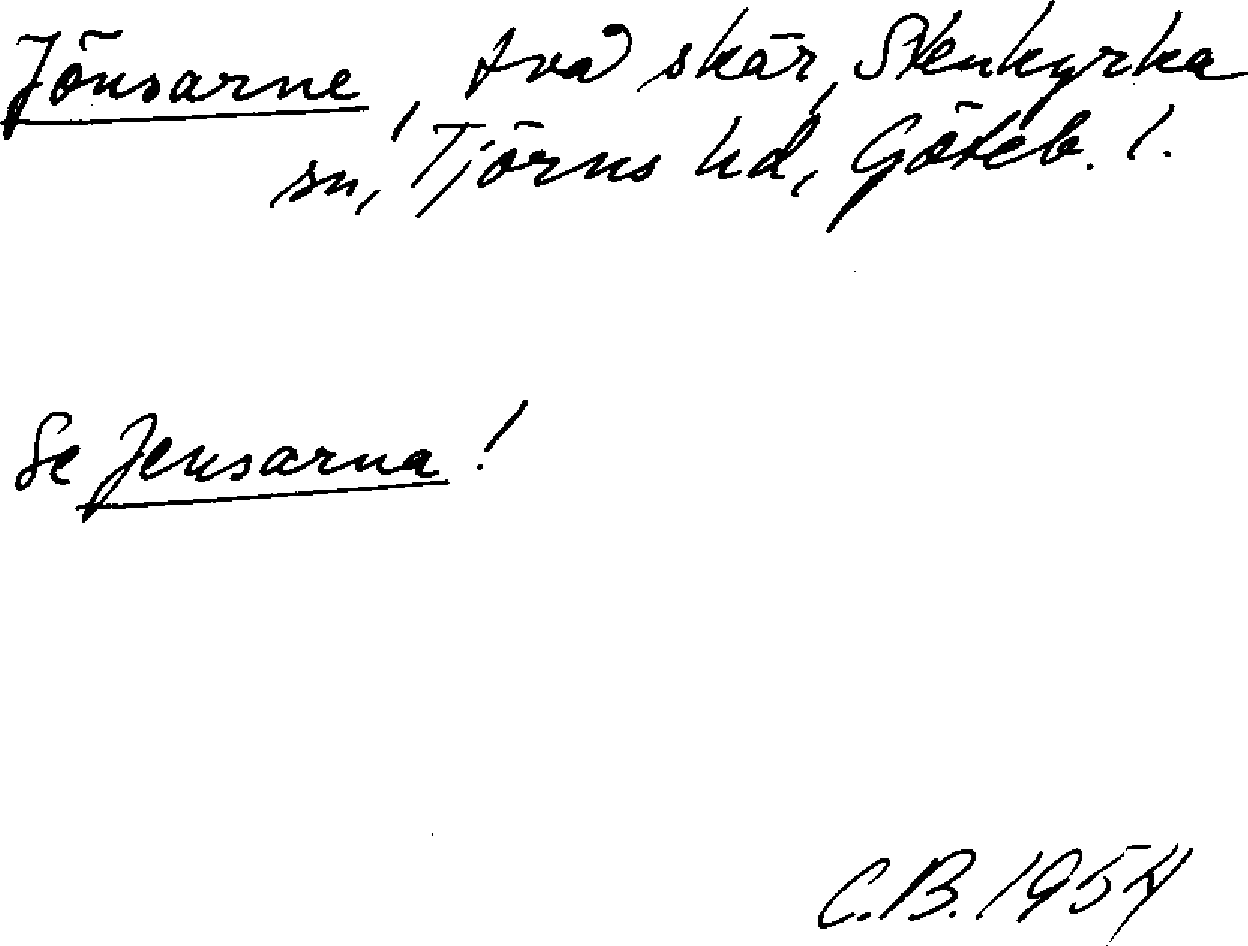 Jönsarne, två skär, Stenkyrka
sn, Tjörns hd, Göteb. l.
Se Jensarna!
C.B. 1954